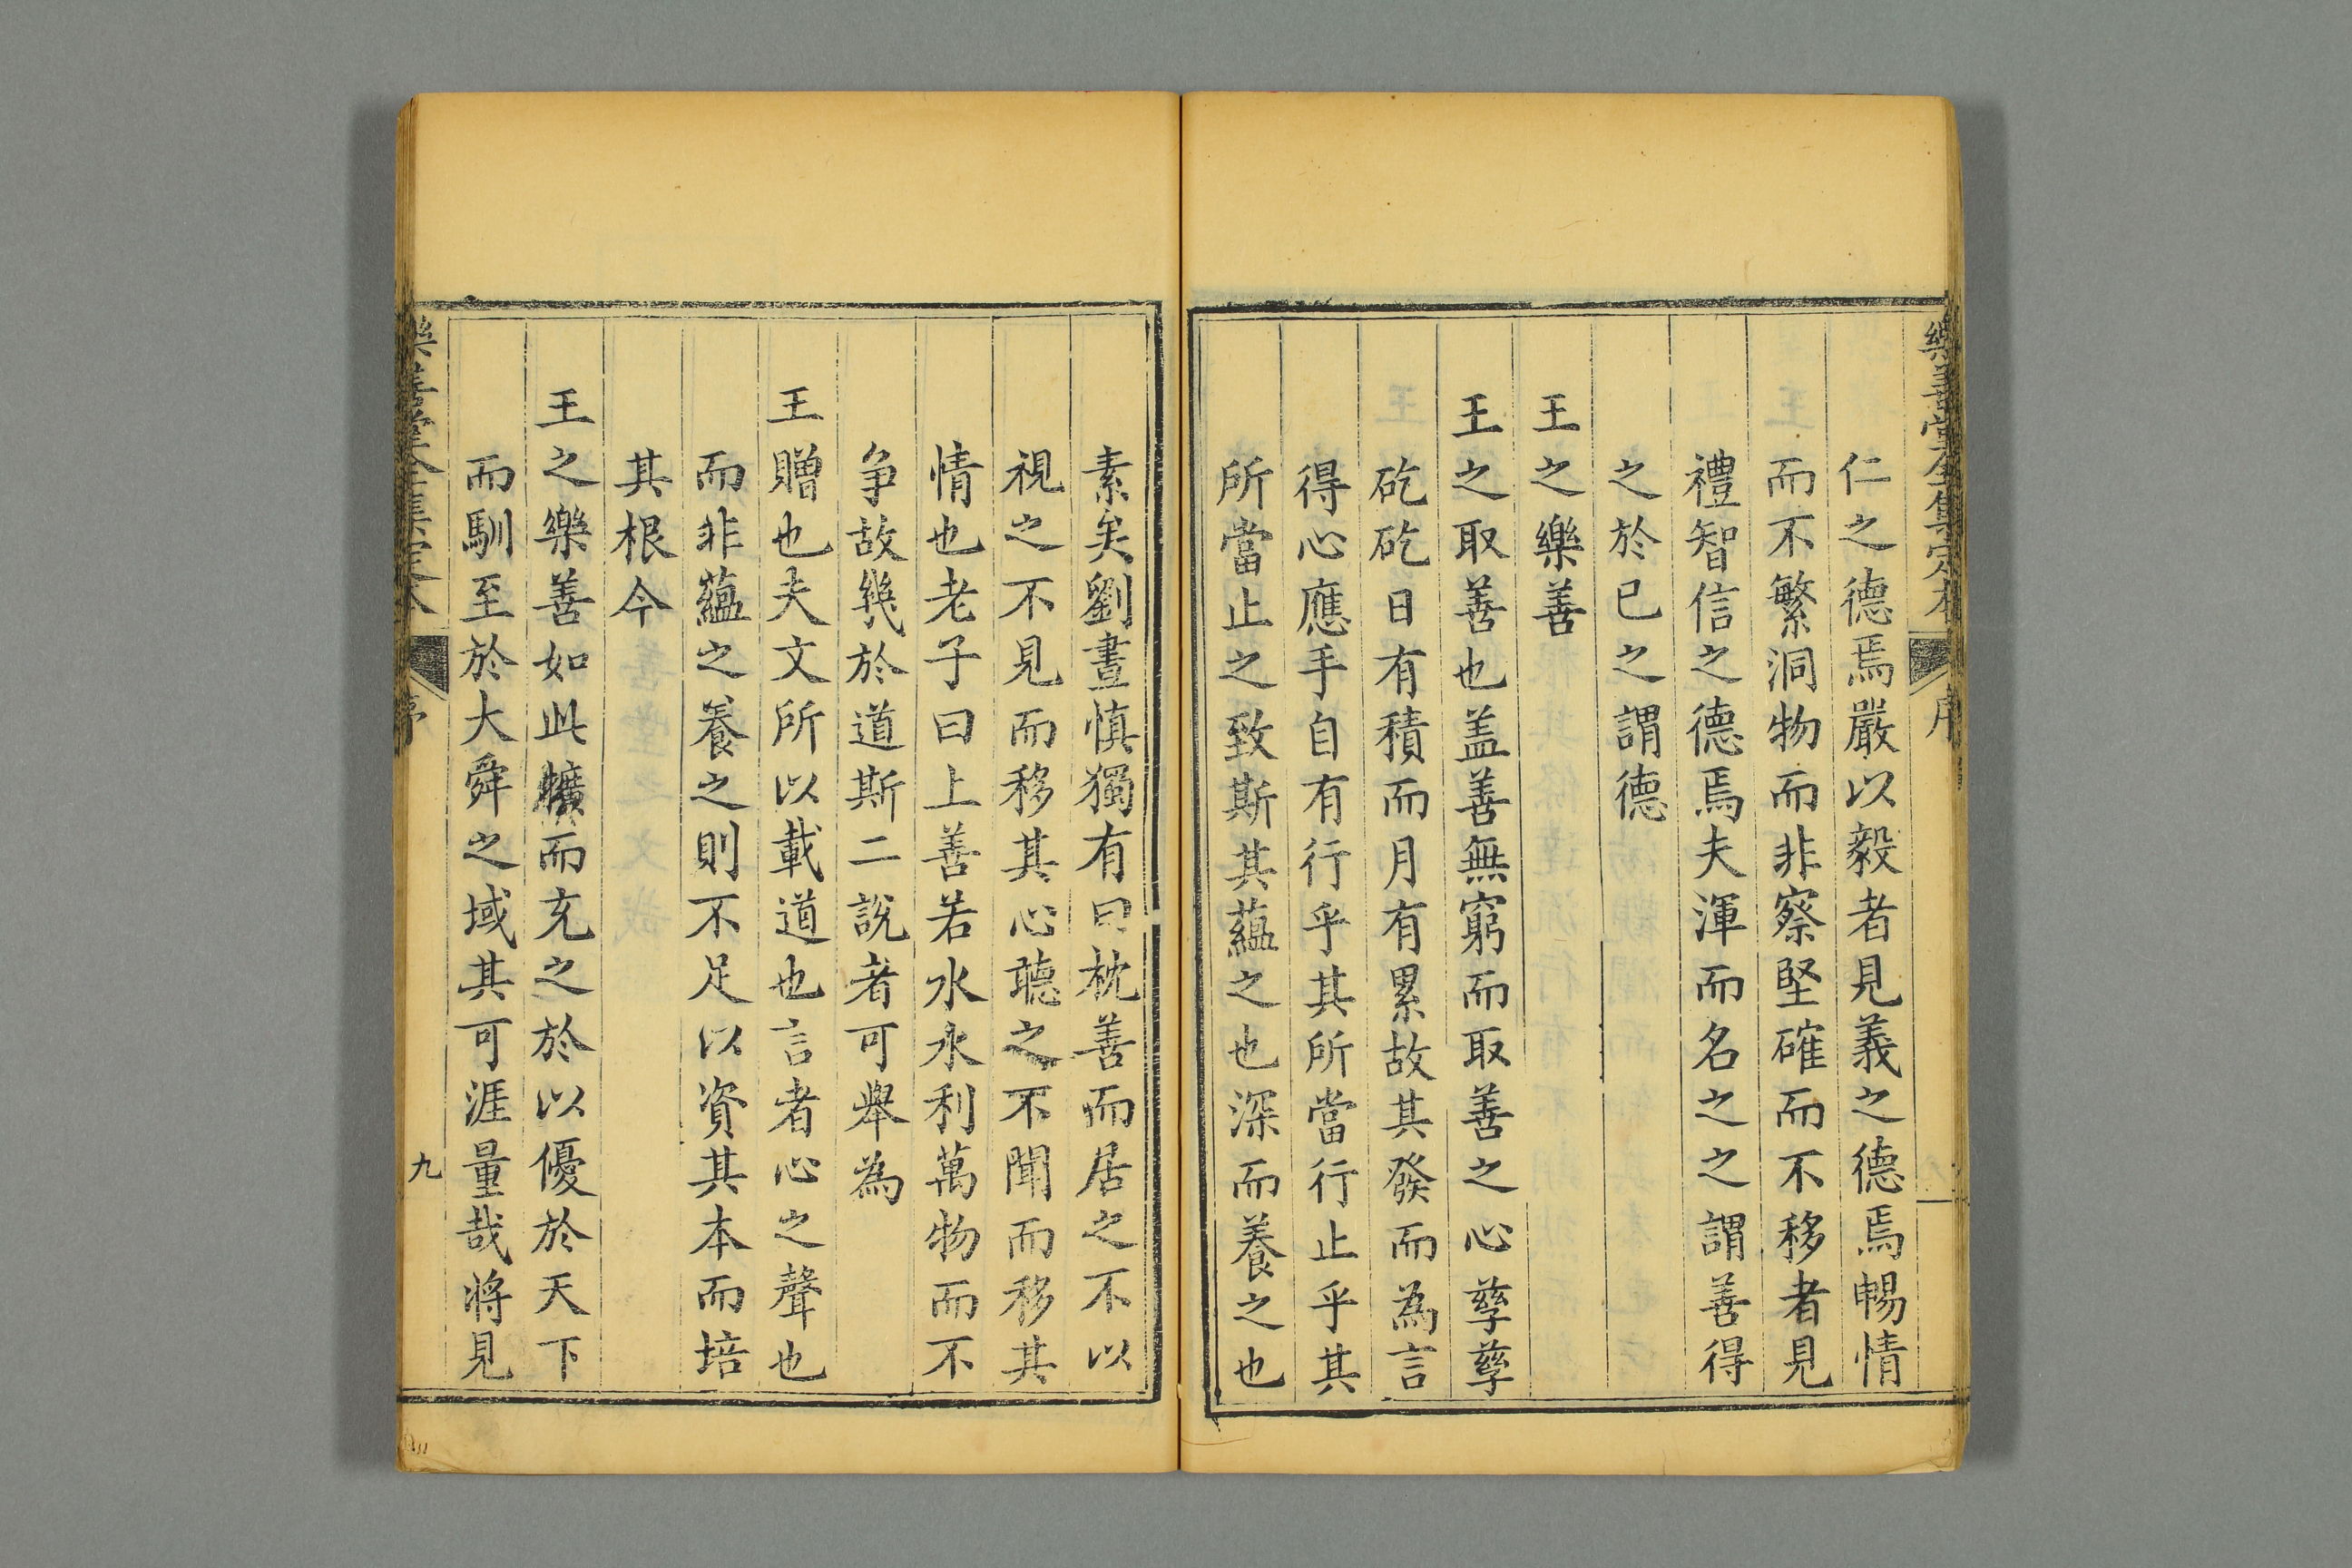 樂善堂全集定本
序
仁之德焉嚴以毅者見義之德焉暢情
而不繁洞物而非察堅確而不移者見
禮智信之德焉夫渾而名之之謂善得
之於已之謂德
王之樂善
王之取善也盖善無窮而取善之心孳孳
矻矻日有積而月有累故其發而為言
得心應手自有行乎其所當行止乎其
所當止之致斯其蘊之也深而養之也
素矣劉晝慎獨有曰枕善而居之不以
視之不見而移其心聽之不聞而移其
情也老子曰上善若水水利萬物而不
争故幾於道斯二説者可舉為
王贈也夫文所以載道也言者心之聲也
而非蘊之養之則不足以資其本而培
其根今
王之樂善如此擴而充之於以優於天下
而馴至於大舜之域其可涯量哉將見
樂善堂全集定本
序
九